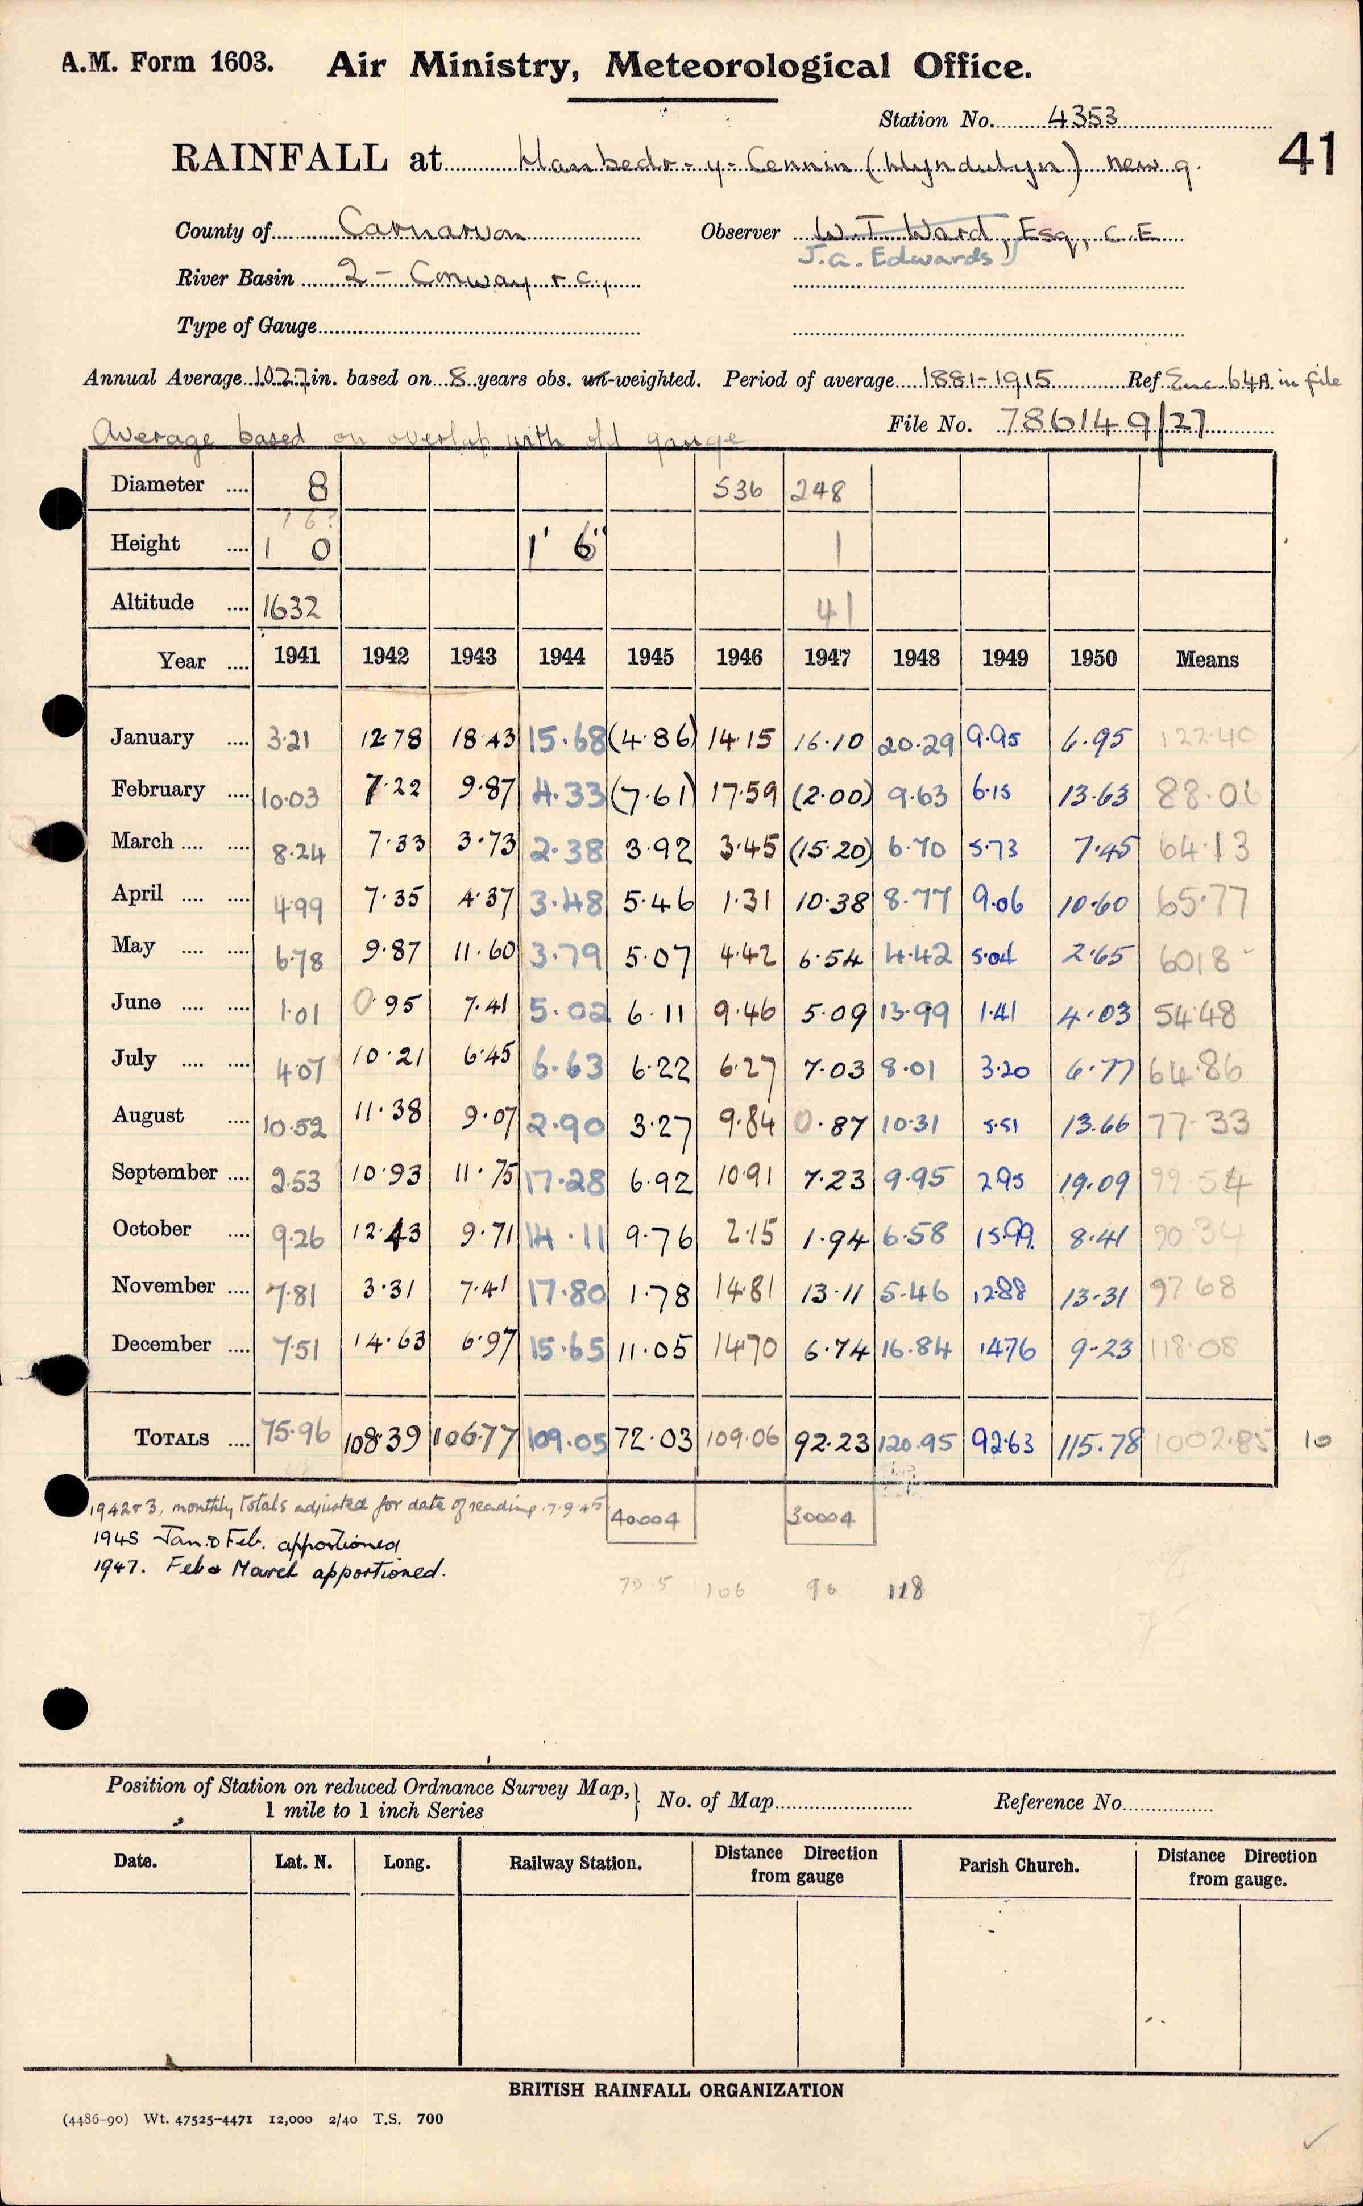 A.M. Form 1603. Air Ministry, Meteorological Office.
Station No. 4353
41
RAINFALL at Llanbedr-y-Cennin (Llyndulyn) new g.
County of Carnarvon Observer W.T. Ward, Esq, C.E.
J.G. Edwards
River Basin 2 - Conway r.c.,
Type of Gauge
Annual Average 102.7 in. based on 8 years obs. un-weighted. Period of average 1881-1915 Ref Enc. 64A in file
File No. 786149/27
Average based on overlap with old gauge
Diameter .... 8 536 248
1 6?
Height .... 1 0 1' 6" 1
Altitude .... 1632 41
Year .... 1941 1942 1943 1944 1945 1946 1947 1948 1949 1950 Means
January .... 3.21 12.78 18.43 15.68 (4.86) 14.15 16.10 20.29 9.95 6.95 122.40
February .... 10.03 7.22 9.87 4.33 (7.61) 17.59 (2.00) 9.63 6.15 13.63 88.06
March .... .... 8.24 7.33 3.73 2.38 3.92 3.45 (15.20) 6.70 5.73 7.45 64.13
April .... .... 4.99 7.35 4.37 3.48 5.46 1.31 10.38 8.77 9.06 10.60 65.77
May .... .... 6.78 9.87 11.60 3.79 5.07 4.42 6.54 4.42 5.04 2.65 60.18
June .... .... 1.01 0.95 7.41 5.02 6.11 9.46 5.09 13.99 1.41 4.03 54.48
July .... .... 4.07 10.21 6.45 6.63 6.22 6.27 7.03 8.01 3.20 6.77 64.86
August .... 10.52 11.38 9.07 2.90 3.27 9.84 0.87 10.31 5.51 13.66 77.33
September .... 2.53 10.93 11.75 17.28 6.92 10.91 7.23 9.95 2.95 19.09 99.54
October .... 9.26 12.43 9.71 14.11 9.76 2.15 1.94 6.58 15.99 8.41 90.34
November .... 7.81 3.31 7.41 17.80 1.78 14.81 13.11 5.46 12.88 13.31 97.68
December .... 7.51 14.63 6.97 15.65 11.05 14.70 6.74 16.84 14.76 9.23 118.08
TOTALS .... 75.96 108.39 106.77 109.05 72.03 109.06 92.23 120.95 92.63 115.78 1002.85 10
1942 & 3, monthly totals adjusted for date of reading. 7.9.45
40004 30004
1945 Jan. & Feb. apportioned
1947. Feb & March apportioned.
70.5 106 90 118
Position of Station on reduced Ordnance Survey Map,
1 mile to 1 inch Series
No. of Map Reference No.
Date. Lat. N. Long. Railway Station. Distance Direction from gauge Parish Church. Distance Direction from gauge.
BRITISH RAINFALL ORGANIZATION
(4486-90) Wt. 47525-4471 12,000 2/40 T.S. 700